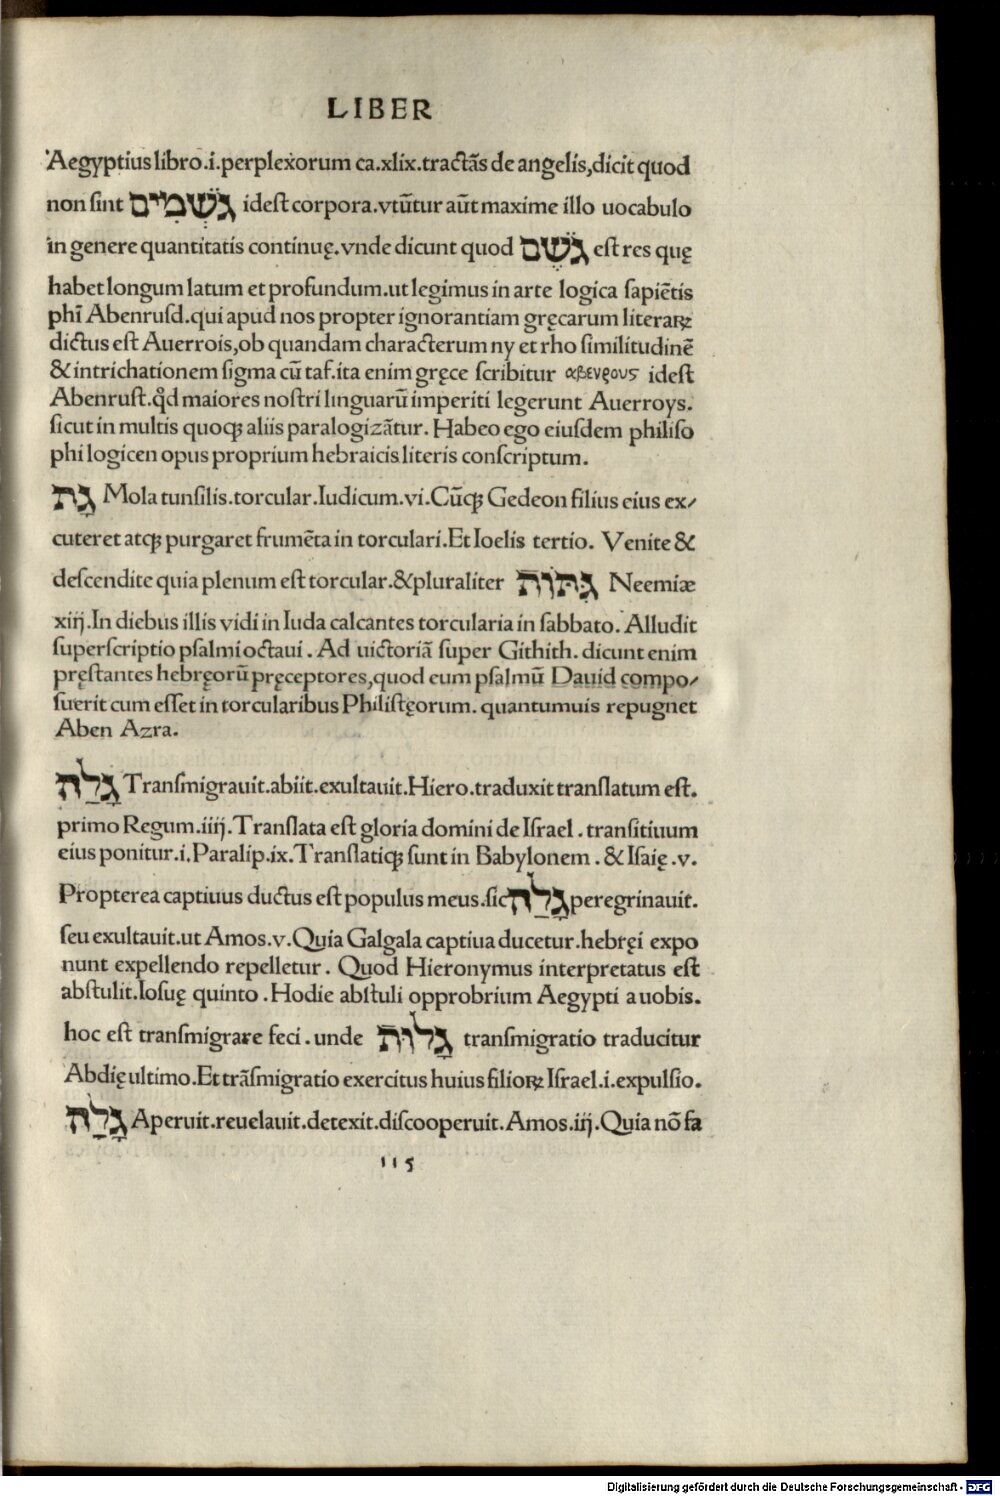 LIBER
Aegyptius libro.i.perplexorum ca.xlix.tractãs de angelis,dicit quod
non sint גֹּשְׁמִים idest corpora.vtũtur aũt maxime illo uocabulo
in genere quantitatis continuę.vnde dicunt quod גֹּשֶׁם est res quę
habet longum latum et profundum.ut legimus in arte logica sapiẽtis
phĩ Abenrusd.qui apud nos propter ignorantiam gręcarum literaꝝ
dictus est Auerrois,ob quandam characterum ny et rho similitudinẽ
& intrichationem sigma cũ taf.ita enim gręce scribitur αβενρους idest
Abenrust.qd̃ maiores nostri linguarũ imperiti legerunt Auerroys.
sicut in multis quoqꝫ aliis paralogizãtur. Habeo ego eiusdem philiso
phi logicen opus proprium hebraicis literis conscriptum.
גָּת Mola tunsilis.torcular.Iudicum.vi.Cũqꝫ Gedeon filius eius ex/
cuteret atqꝫ purgaret frumẽta in torculari.Et Ioelis tertio. Venite &
descendite quia plenum est torcular.& pluraliter גִּתּוֹת Neemiæ
xiij.In diebus illis vidi in Iuda calcantes torcularia in sabbato. Alludit
superscriptio psalmi octaui. Ad uictoriã super Githith. dicunt enim
pręstantes hebręorũ pręceptores,quod eum psalmũ Dauid compo/
suerit cum esset in torcularibus Philistęorum. quantumuis repugnet
Aben Azra.
גָּלַה Transmigrauit.abiit.exultauit.Hiero.traduxit translatum est.
primo Regum.iiij.Translata est gloria domini de Israel. transitiuum
eius ponitur.i.Paralip.ix.Translatiqꝫ sunt in Babylonem. & Isaię.v.
Propterea captiuus ductus est populus meus.sic גָּלַה peregrinauit.
seu exultauit.ut Amos.v.Quia Galgala captiua ducetur.hebręi expo
nunt expellendo repelletur. Quod Hieronymus interpretatus est
abstulit.Iosuę quinto. Hodie abstuli opprobrium Aegypti a uobis.
hoc est transmigrare feci. unde גָּלוּת transmigratio traducitur
Abdię ultimo.Et trãsmigratio exercitus huius filioꝝ Israel.i.expulsio.
גָּלַה Aperuit.reuelauit.detexit.discooperuit.Amos.iij.Quia nõ fa
115
Digitalisierung gefördert durch die Deutsche Forschungsgemeinschaft - DFG